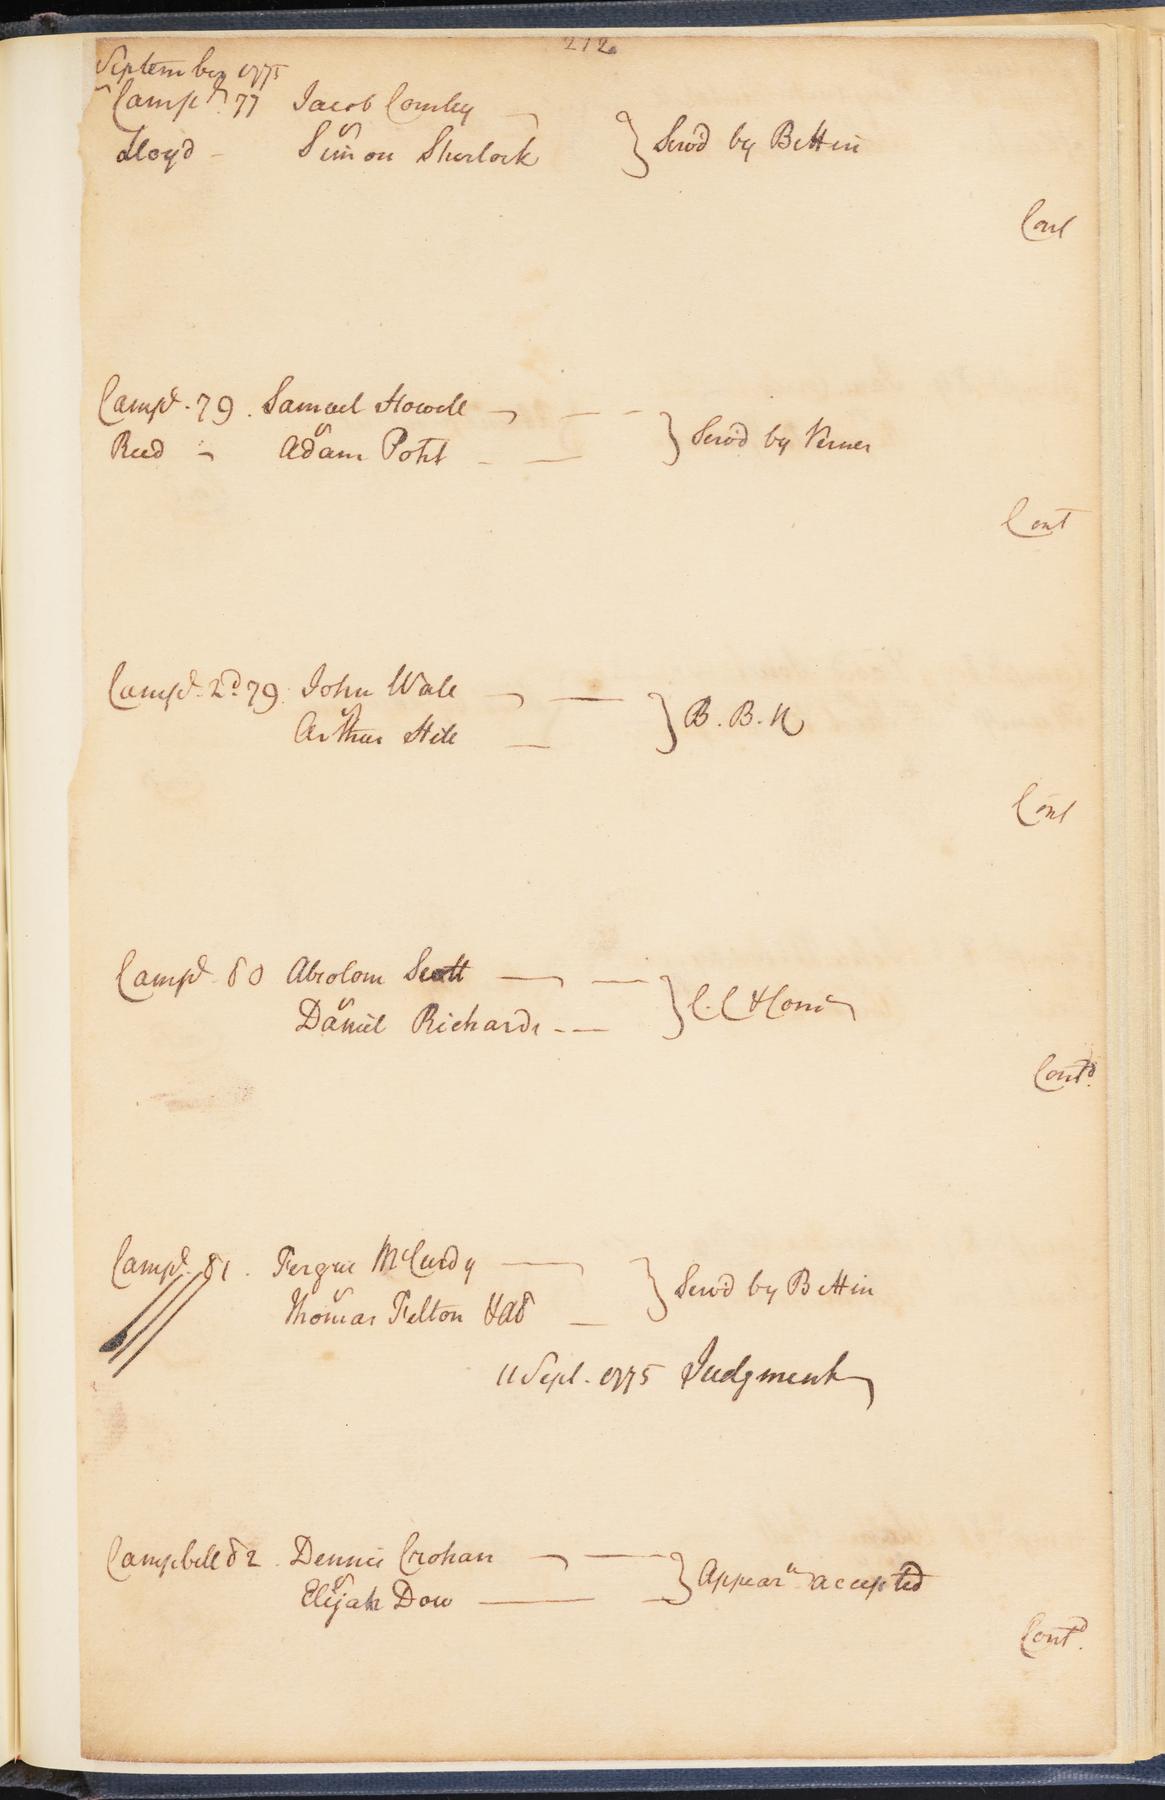 212
September 1775
Campl. 77 Jacob Comley
vs
Lloyd - Simon Sherlock } Serv'd by Bettin
Cont
Campl. 79. Samuel Howell
vs
Reed - Adam Poht } Serv'd by Verner
Cont
Campl. 2d 79. John Wall
vs
Arthur Hill } B. B. N
Cont
Campl. 80 Absolom Scott
vs
Daniel Richards } C. C &
Contd.
Campl. 81. Fergus McCurdy
vs
Thomas Felton } Serv'd by Bettin
11 Sept. 1775 Judgment
Campbell 82 Dennis Crohan
vs
Elijah Dow } Appear accepted
Contd.